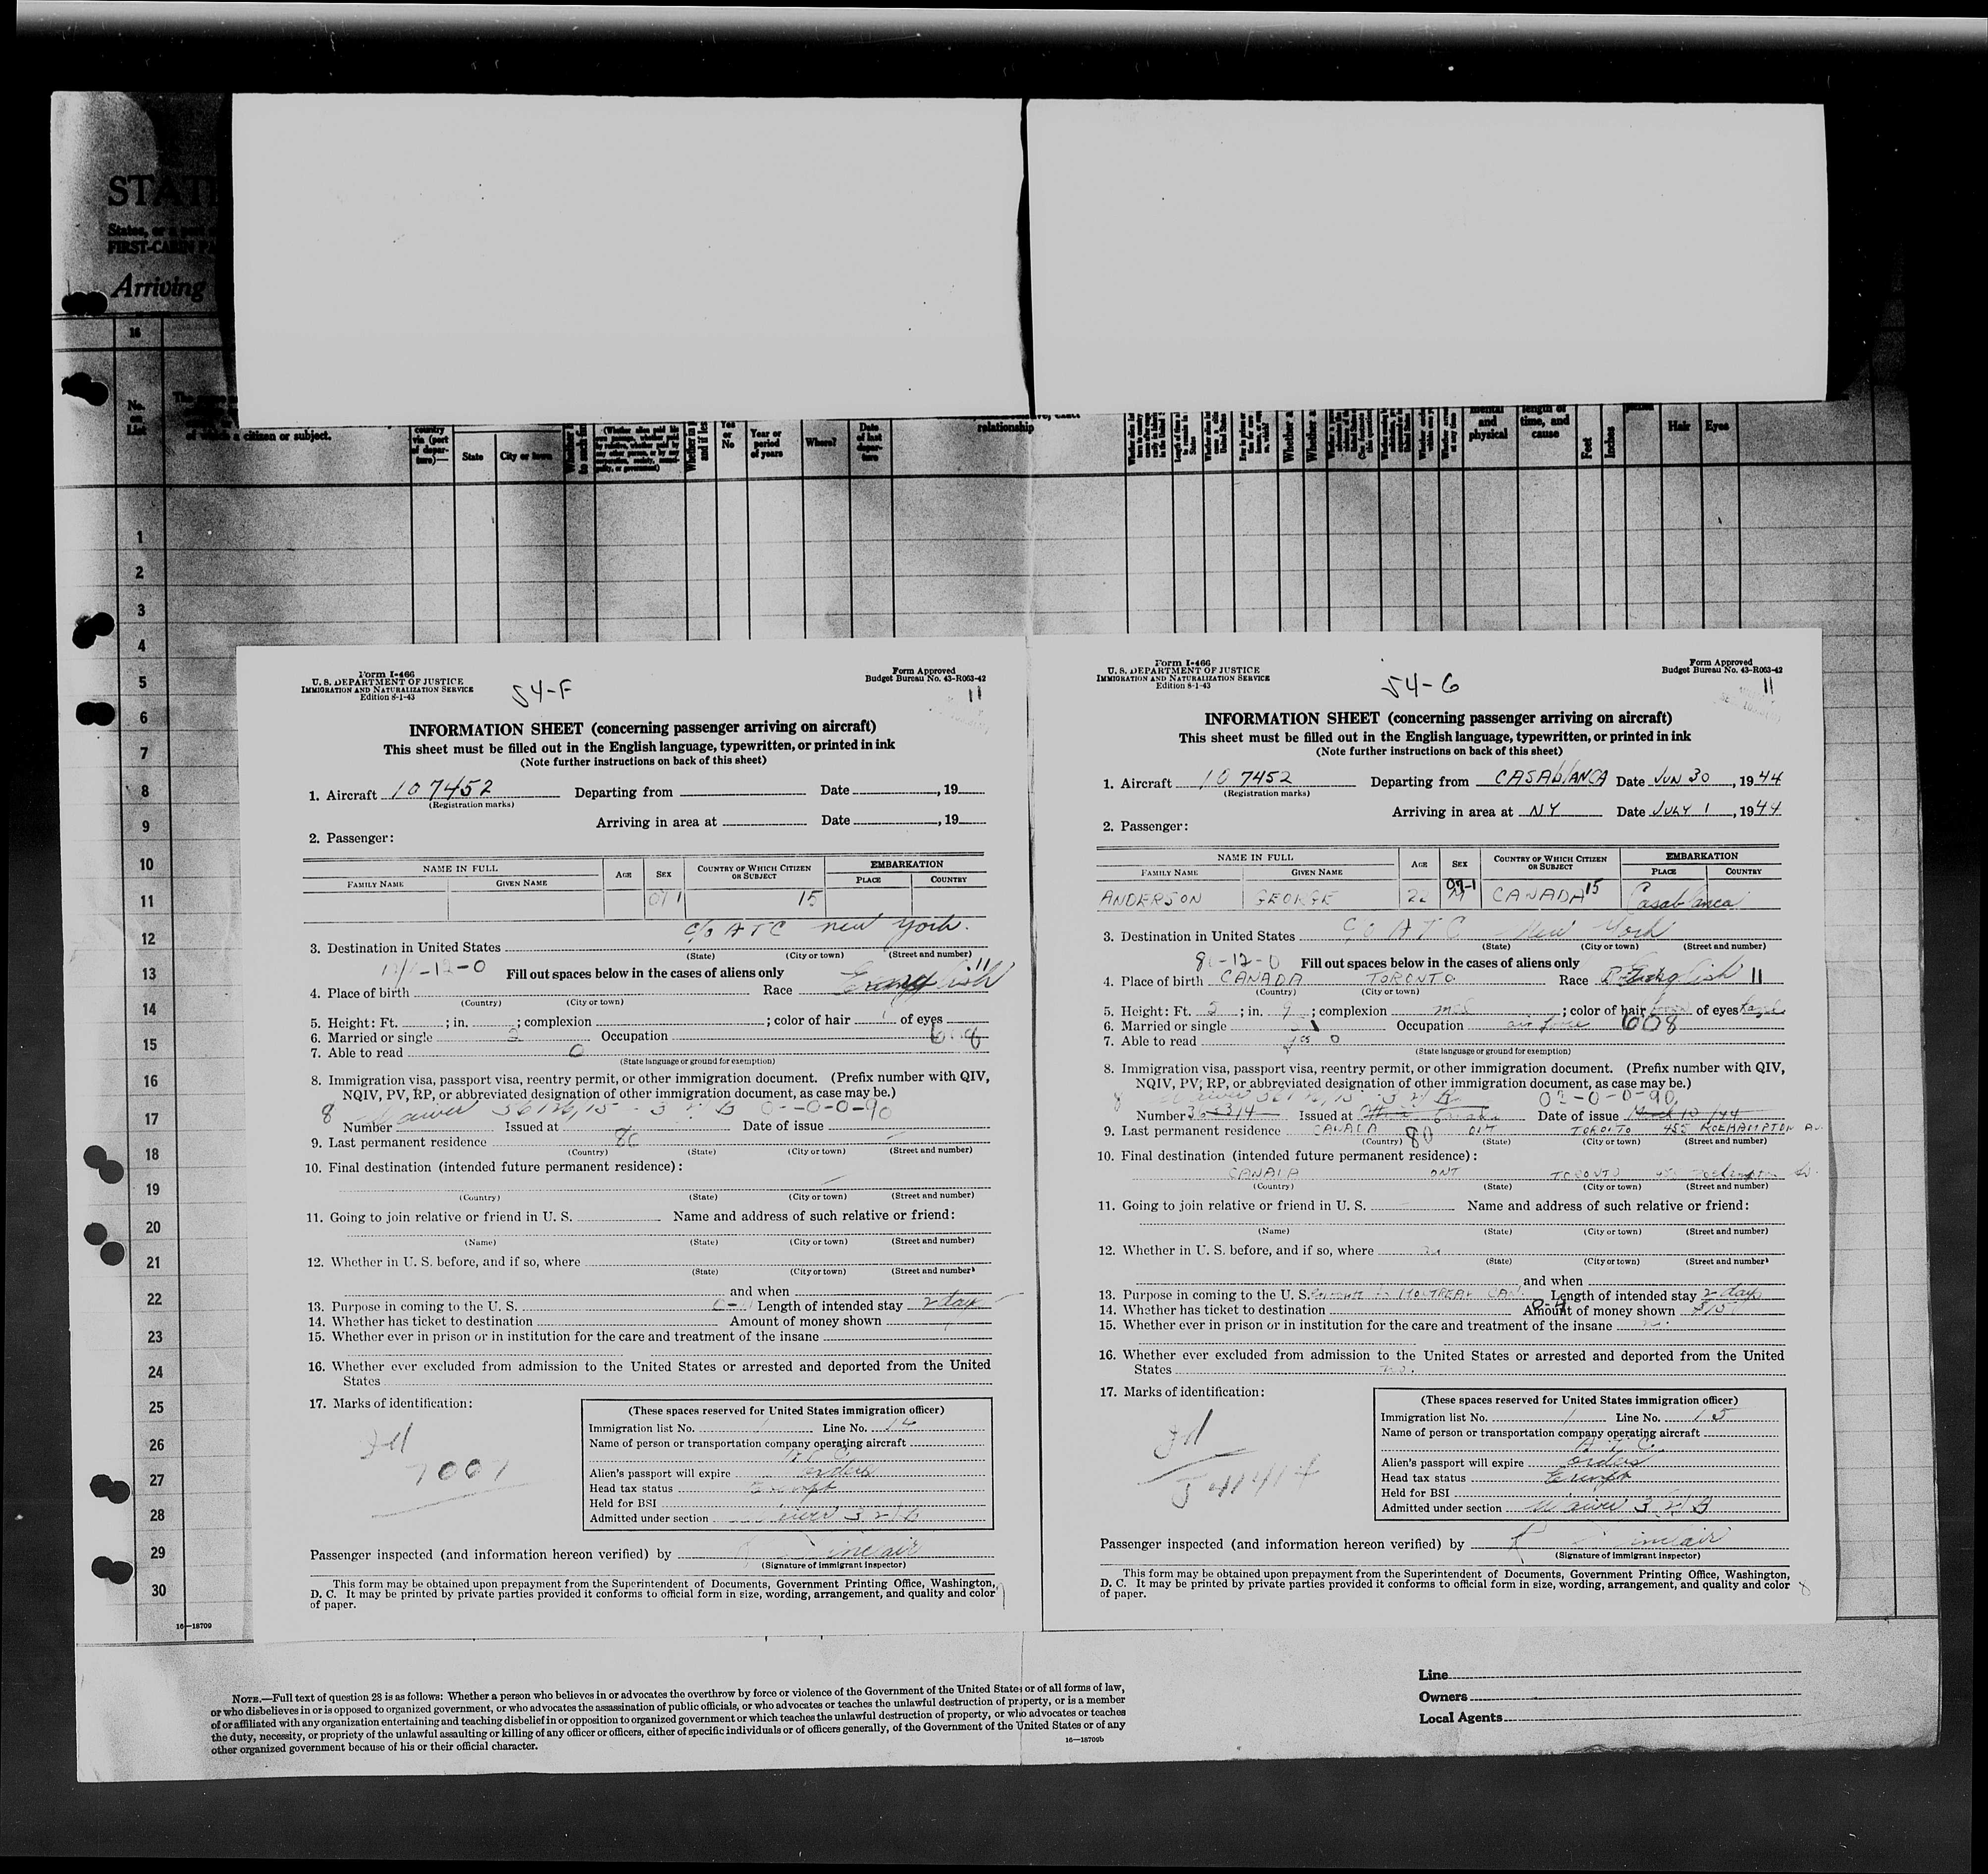 STATE
States, or a
FIRST-CABIN PA
Arriving
16
No.
on
List
of which a citizen or subject.
country
via (port
of depar-
ture)—
State
City or town
(Whether alien paid his
Yes
or
No
Year or
period
of years
Where?
Date
of last
depar-
ture
relationship
mental
and
physical
length of
time, and
cause
Feet
Inches
Hair
Eyes
1
2
3
4
5
6
7
8
9
10
11
12
13
14
15
16
17
18
19
20
21
22
23
24
25
26
27
28
29
30
16—18709
Form I-466
U. S. DEPARTMENT OF JUSTICE
IMMIGRATION AND NATURALIZATION SERVICE
Edition 8-1-43
54-F
Form Approved
Budget Bureau No. 43-R063-42
11
INFORMATION SHEET (concerning passenger arriving on aircraft)
This sheet must be filled out in the English language, typewritten, or printed in ink
(Note further instructions on back of this sheet)
1. Aircraft 107452 Departing from Date , 19
(Registration marks)
Arriving in area at Date , 19
2. Passenger:
NAME IN FULL AGE SEX COUNTRY OF WHICH CITIZEN OR SUBJECT EMBARKATION
FAMILY NAME GIVEN NAME PLACE COUNTRY
15
3. Destination in United States c/o ATC new york.
(State) (City or town) (Street and number)
-12-0 Fill out spaces below in the cases of aliens only 11
4. Place of birth Race English
(Country) (City or town)
5. Height: Ft. ; in. ; complexion ; color of hair of eyes
6. Married or single 2 Occupation
7. Able to read 0
(State language or ground for exemption)
8. Immigration visa, passport visa, reentry permit, or other immigration document. (Prefix number with QIV,
NQIV, PV, RP, or abbreviated designation of other immigration document, as case may be.)
8 Waiver
Number Issued at Date of issue
9. Last permanent residence 80
(Country) (State) (City or town) (Street and number)
10. Final destination (intended future permanent residence):
(Country) (State) (City or town) (Street and number)
11. Going to join relative or friend in U. S. Name and address of such relative or friend:
(Name) (State) (City or town) (Street and number)
12. Whether in U. S. before, and if so, where
(State) (City or town) (Street and number)
and when
13. Purpose in coming to the U. S. Length of intended stay 2 days
14. Whether has ticket to destination Amount of money shown
15. Whether ever in prison or in institution for the care and treatment of the insane
16. Whether ever excluded from admission to the United States or arrested and deported from the United
States
17. Marks of identification:
(These spaces reserved for United States immigration officer)
Immigration list No. 1 Line No. 14
Name of person or transportation company operating aircraft
ATC
Alien's passport will expire orders
Head tax status Exempt
Held for BSI
Admitted under section
7007
Passenger inspected (and information hereon verified) by Sinclair
(Signature of immigrant inspector)
This form may be obtained upon prepayment from the Superintendent of Documents, Government Printing Office, Washington,
D. C. It may be printed by private parties provided it conforms to official form in size, wording, arrangement, and quality and color
of paper.
Form I-466
U. S. DEPARTMENT OF JUSTICE
IMMIGRATION AND NATURALIZATION SERVICE
Edition 8-1-43
54-G
Form Approved
Budget Bureau No. 43-R063-42
11
INFORMATION SHEET (concerning passenger arriving on aircraft)
This sheet must be filled out in the English language, typewritten, or printed in ink
(Note further instructions on back of this sheet)
1. Aircraft 107452 Departing from CASAblANCA Date JUN 30 , 1944
(Registration marks)
Arriving in area at NY Date JULY 1 , 1944
2. Passenger:
NAME IN FULL AGE SEX COUNTRY OF WHICH CITIZEN OR SUBJECT EMBARKATION
FAMILY NAME GIVEN NAME PLACE COUNTRY
ANDERSON GEORGE 22 M CANADA 15 Casablanca
3. Destination in United States c/o ATC New York
(State) (City or town) (Street and number)
80-12-0 Fill out spaces below in the cases of aliens only
4. Place of birth CANADA TORONTO Race English 11
(Country) (City or town)
5. Height: Ft. 5 ; in. 7 ; complexion med ; color of hair brown of eyes hazel
6. Married or single Occupation air force 608
7. Able to read yes 0
(State language or ground for exemption)
8. Immigration visa, passport visa, reentry permit, or other immigration document. (Prefix number with QIV,
NQIV, PV, RP, or abbreviated designation of other immigration document, as case may be.)
Waiver 0-0-0-90
Number 36314 Issued at Date of issue March 10/44
9. Last permanent residence CANADA 80 ONT TORONTO 455 ROEHAMPTON AV
(Country) (State) (City or town) (Street and number)
10. Final destination (intended future permanent residence):
CANADA ONT TORONTO 455 Roehampton Av.
(Country) (State) (City or town) (Street and number)
11. Going to join relative or friend in U. S. Name and address of such relative or friend:
(Name) (State) (City or town) (Street and number)
12. Whether in U. S. before, and if so, where no
(State) (City or town) (Street and number)
and when
13. Purpose in coming to the U. S. enroute to MONTREAL CAN. Length of intended stay 2 days
14. Whether has ticket to destination Amount of money shown $15
15. Whether ever in prison or in institution for the care and treatment of the insane no.
16. Whether ever excluded from admission to the United States or arrested and deported from the United
States no.
17. Marks of identification:
(These spaces reserved for United States immigration officer)
Immigration list No. 1 Line No. 15
Name of person or transportation company operating aircraft
A.T.C.
Alien's passport will expire orders
Head tax status Exempt
Held for BSI
Admitted under section Waiver 3(2)B
J41414
Passenger inspected (and information hereon verified) by R Sinclair
(Signature of immigrant inspector)
This form may be obtained upon prepayment from the Superintendent of Documents, Government Printing Office, Washington,
D. C. It may be printed by private parties provided it conforms to official form in size, wording, arrangement, and quality and color
of paper.
NOTE.—Full text of question 28 is as follows: Whether a person who believes in or advocates the overthrow by force or violence of the Government of the United States or of all forms of law,
or who disbelieves in or is opposed to organized government, or who advocates the assassination of public officials, or who advocates or teaches the unlawful destruction of property, or is a member
of or affiliated with any organization entertaining and teaching disbelief in or opposition to organized government or which teaches the unlawful destruction of property, or who advocates or teaches
the duty, necessity, or propriety of the unlawful assaulting or killing of any officer or officers, either of specific individuals or of officers generally, of the Government of the United States or of any
other organized government because of his or their official character.
16—18709b
Line
Owners
Local Agents